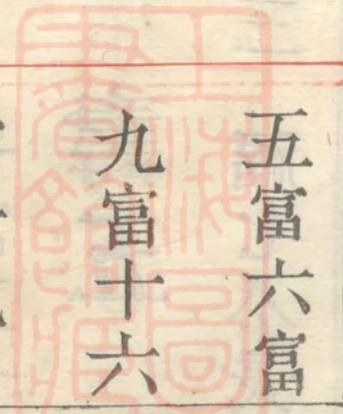 五富六富
九富十六